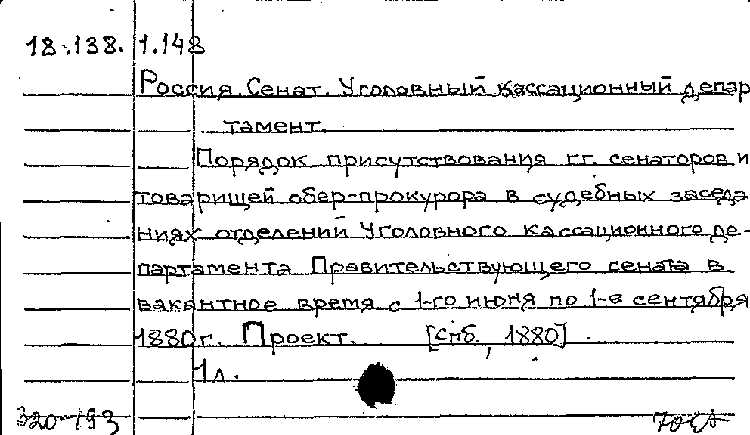 18.138.1.148
Россия. Сенат. Уголовный кассационный депар
тамент.
Порядок присутствования гг. сенаторов и
товарищей обер-прокурора в судебных заседа
ниях отделений Уголовного кассационного де-
партамента Правительствующего сената в
вакантное время с 1-го июня по 1-е сентября
1880 г. Проект. [Спб., 1880]
1 л.
320-193